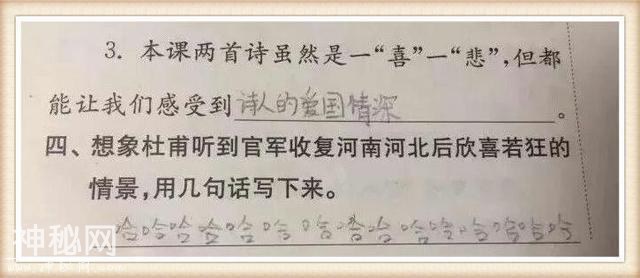 3. 本课两首诗虽然是一“喜”一“悲”,但都
能让我们感受到诗人的爱国情深。
四、想象杜甫听到官军收复河南河北后欣喜若狂的
情景,用几句话写下来。
哈哈哈哈哈哈哈哈哈哈哈哈哈哈哈
神秘网